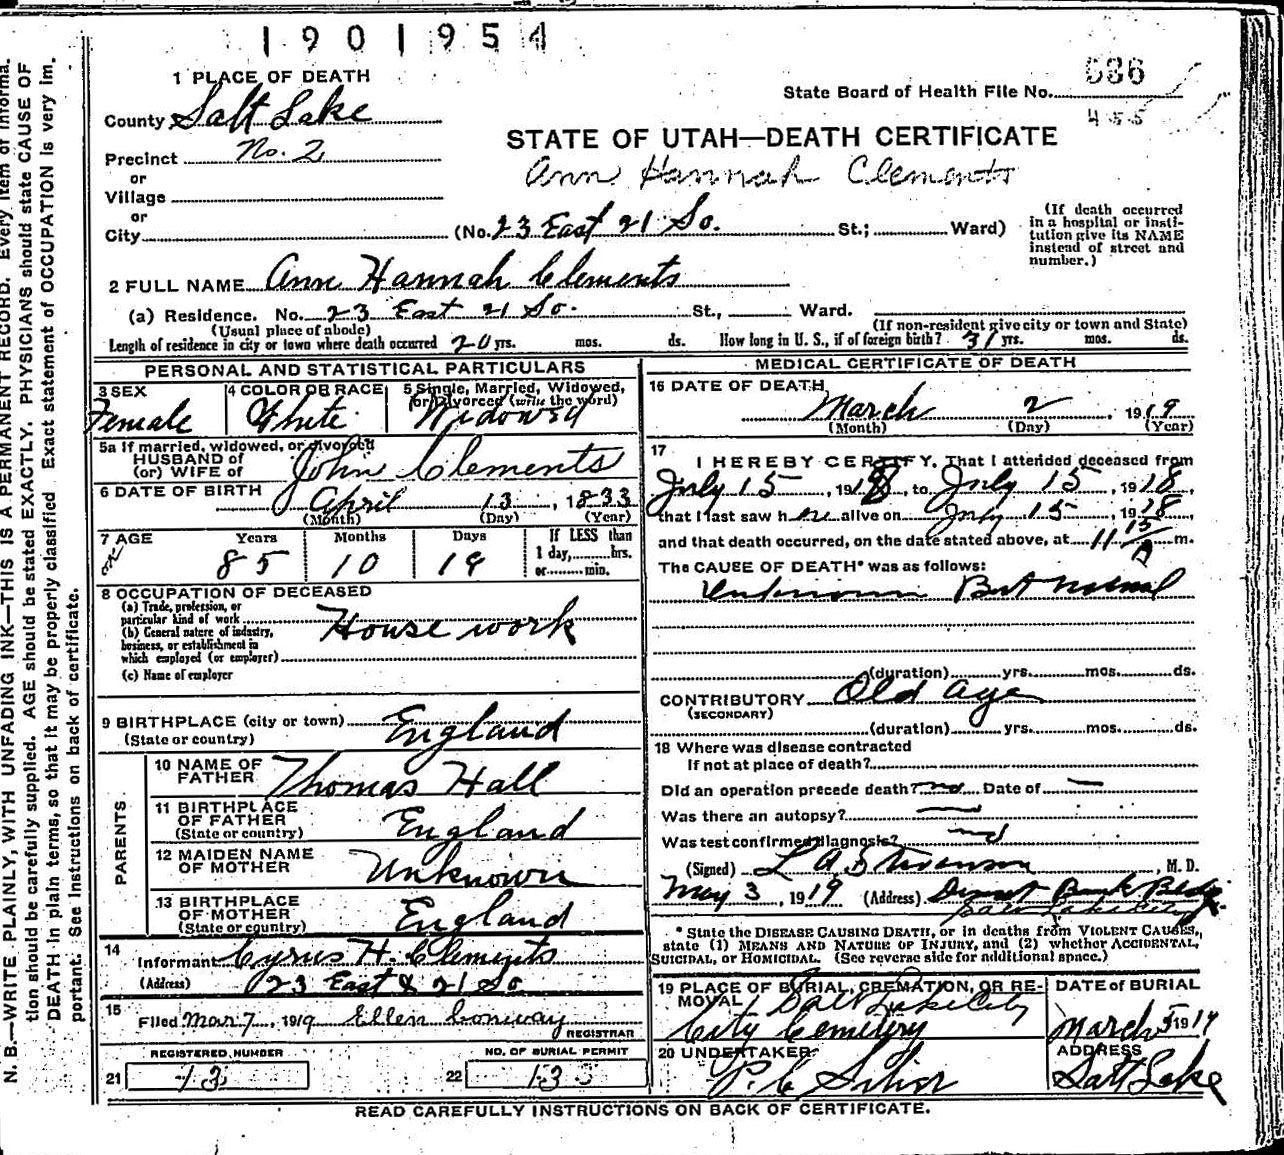 1901954
1 PLACE OF DEATH
County Salt Lake
Precinct No. 2
or
Village
or
City
State Board of Health File No. 636
455
STATE OF UTAH—DEATH CERTIFICATE
Ann Hannah Clements
(No. 23 East 21 So. St.; Ward)
(If death occurred
in a hospital or insti-
tution give its NAME
instead of street and
number.)
2 FULL NAME Ann Hannah Clements
(a) Residence. No. 23 East 21 So. St., Ward.
(Usual place of abode)
(If non-resident give city or town and State)
Length of residence in city or town where death occurred 20 yrs. mos. ds. How long in U. S., if of foreign birth? 31 yrs. mos. ds.
PERSONAL AND STATISTICAL PARTICULARS
3 SEX
Female
4 COLOR OR RACE
White
5 Single, Married, Widowed,
or Divorced (write the word)
Widowed
5a If married, widowed, or divorced
HUSBAND of
(or) WIFE of John Clements
6 DATE OF BIRTH April 13, 1833
(Month) (Day) (Year)
7 AGE Years Months Days If LESS than
1 day, hrs.
or min.
85 10 19
8 OCCUPATION OF DECEASED
(a) Trade, profession, or
particular kind of work House work
(b) General nature of industry,
business, or establishment in
which employed (or employer)
(c) Name of employer
9 BIRTHPLACE (city or town) England
(State or country)
PARENTS
10 NAME OF
FATHER Thomas Hall
11 BIRTHPLACE
OF FATHER England
(State or country)
12 MAIDEN NAME
OF MOTHER Unknown
13 BIRTHPLACE
OF MOTHER England
(State or country)
14
Informant Cyrus H. Clements
(Address) 23 East & 21 So
15
Filed Mar 7, 1919 Ellen Conway
REGISTRAR
REGISTERED NUMBER
21 13
NO. OF BURIAL PERMIT
22 133
MEDICAL CERTIFICATE OF DEATH
16 DATE OF DEATH
March 2, 1919
(Month) (Day) (Year)
17
I HEREBY CERTIFY, That I attended deceased from
July 15, 1918, to July 15, 1918
that I last saw her alive on July 15, 1918
and that death occurred, on the date stated above, at 11 15 A m.
The CAUSE OF DEATH* was as follows:
Unknown But natural
(duration) yrs. mos. ds.
CONTRIBUTORY Old age
(SECONDARY)
(duration) yrs. mos. ds.
18 Where was disease contracted
If not at place of death?
Did an operation precede death? no Date of —
Was there an autopsy? —
Was test confirmed diagnosis? no
(Signed) L A Stevenson, M. D.
May 3, 1919 (Address) Deseret Bank Bldg.
Salt Lake City
* State the DISEASE CAUSING DEATH, or in deaths from VIOLENT CAUSES,
state (1) MEANS AND NATURE OF INJURY, and (2) whether ACCIDENTAL,
SUICIDAL, or HOMICIDAL. (See reverse side for additional space.)
19 PLACE OF BURIAL, CREMATION, OR RE-
MOVAL Salt Lake City
City Cemetery
DATE OF BURIAL
March 5 1919
20 UNDERTAKER
ADDRESS
Salt Lake
READ CAREFULLY INSTRUCTIONS ON BACK OF CERTIFICATE.
N. B.—WRITE PLAINLY, WITH UNFADING INK—THIS IS A PERMANENT RECORD. Every item of informa-
tion should be carefully supplied. AGE should be stated EXACTLY. PHYSICIANS should state CAUSE OF
DEATH in plain terms, so that it may be properly classified. Exact statement of OCCUPATION is very im-
portant. See Instructions on back of certificate.